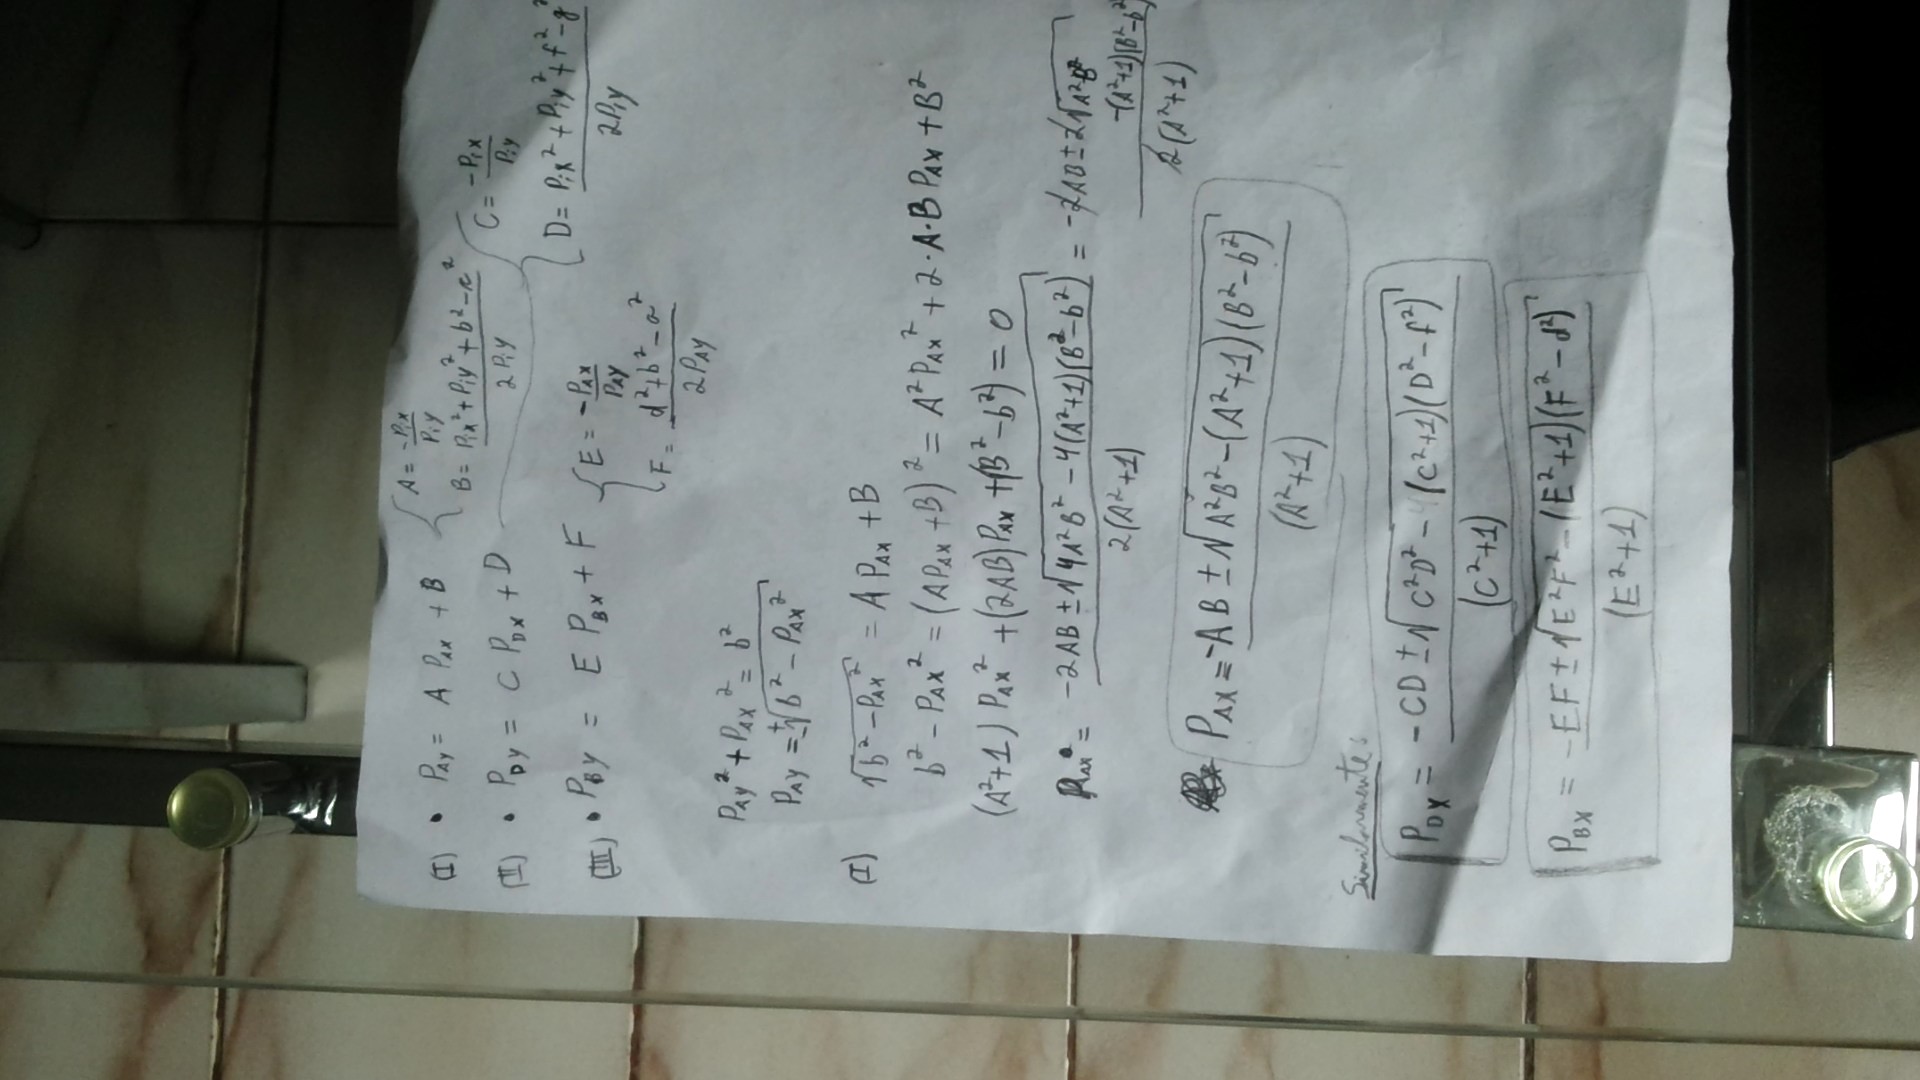 (I) • P_AY = A P_AX + B { A = -P_iX / P_iY
B = (P_iX² + P_iY² + b² - c²) / 2P_iY
(II) • P_DY = C P_DX + D { C = -P_iX / P_iY
D = (P_iX² + P_iY² + f² - g²) / 2P_iY
(III) • P_BY = E P_BX + F { E = -P_AX / P_AY
F = (d² + b² - a²) / 2P_AY
P_AY² + P_AX² = b²
P_AY = ±√(b² - P_AX²)
(I) √(b² - P_AX²) = A P_AX + B
b² - P_AX² = (A P_AX + B)² = A² P_AX² + 2·A·B P_AX + B²
(A² + 1) P_AX² + (2AB) P_AX + (B² - b²) = 0
P_AX = (-2AB ± √(4A²B² - 4(A² + 1)(B² - b²))) / 2(A² + 1) = (-2AB ± 2√(A²B² - (A² + 1)(B² - b²))) / 2(A² + 1)
P_AX = (-AB ± √(A²B² - (A² + 1)(B² - b²))) / (A² + 1)
Similarmente:
P_DX = (-CD ± √(C²D² - (C² + 1)(D² - f²))) / (C² + 1)
P_BX = (-EF ± √(E²F² - (E² + 1)(F² - d²))) / (E² + 1)